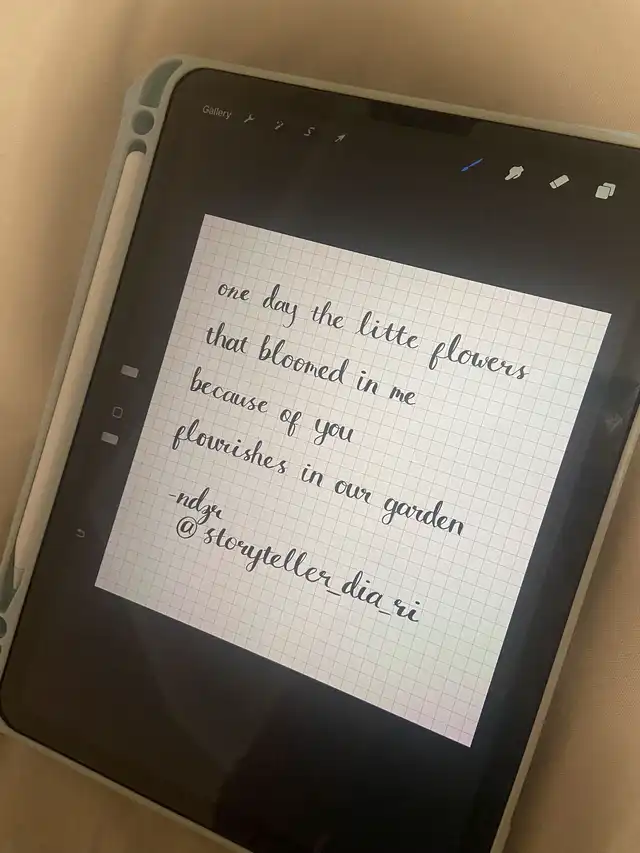 Gallery
one day the litte flowers
that bloomed in me
because of you
flourishes in our garden
-ndzr
@storyteller_dia_ri